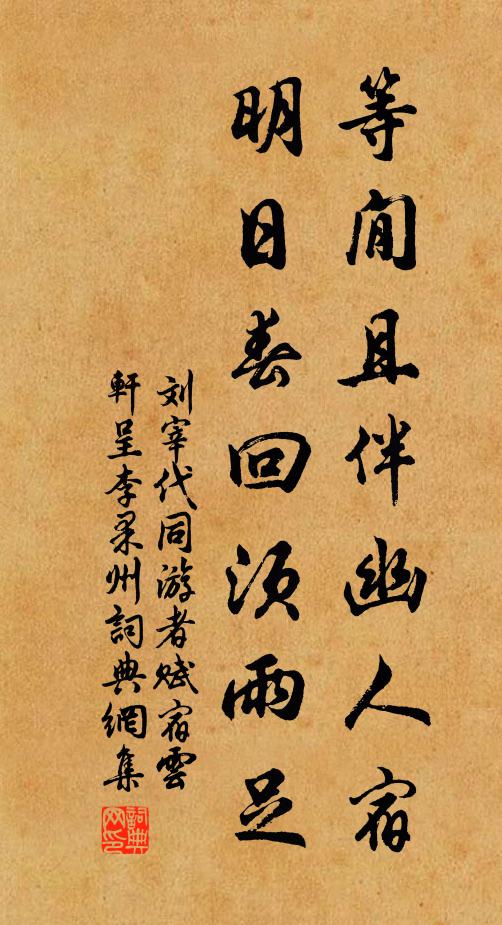 等閒且伴幽人宿
明日春回須雨足
刘宰代同游者赋宿雲
軒呈李果州詞典網集
詞典
网印